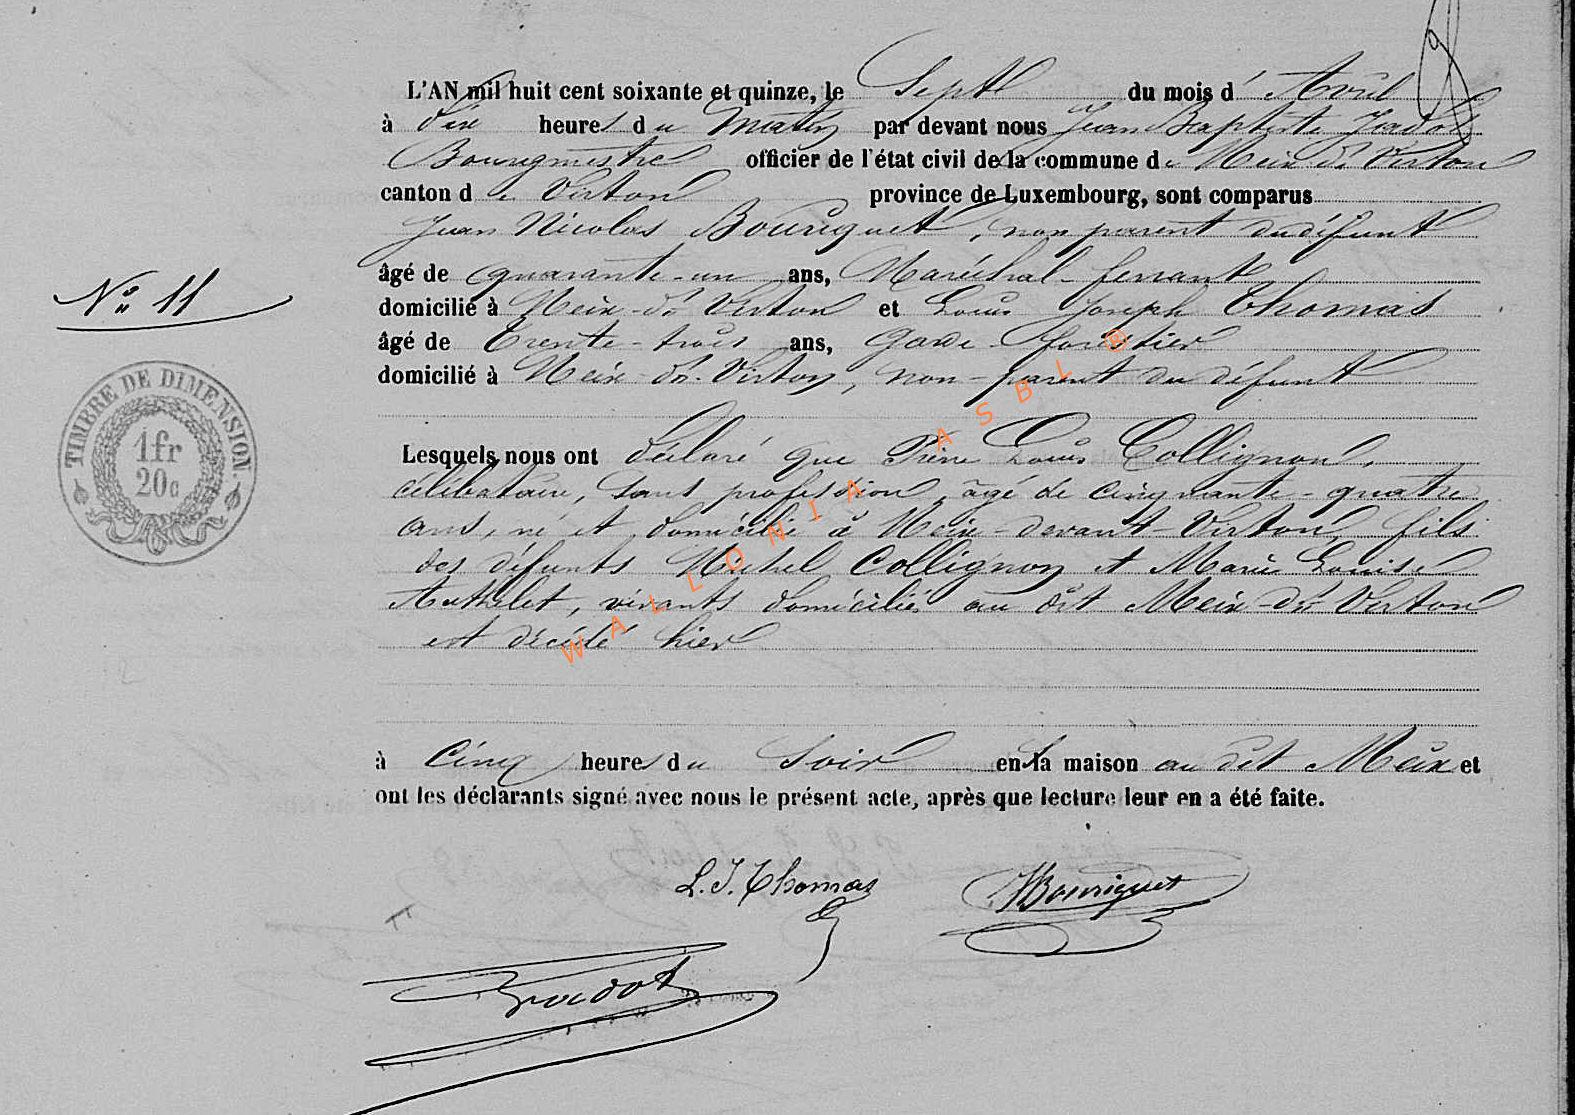 L'AN mil huit cent soixante et quinze, le Sept du mois d' Avril
à dix heures du Matin par devant nous Jean Baptiste
Bourgmestre officier de l'état civil de la commune de Meix-dt-Virton
canton de Virton province de Luxembourg, sont comparus
Jean Nicolas Bouriguet, non parent du défunt
âgé de quarante-un ans, Maréchal-ferrant
N° 11
domicilié à Meix-dt-Virton et Louis Joseph Thomas
âgé de Trente-trois ans, Garde-forestier
domicilié à Meix-dt-Virton, non-parent du défunt
TIMBRE DE DIMENSION.
1fr
20c
Lesquels nous ont déclaré que Pierre Louis Collignon,
célibataire, sans profession, âgé de cinquante-quatre
ans, né et domicilié à Meix-devant-Virton, fils
des défunts Michel Collignon et Marie Louise
Authelet, vivants domiciliés au dit Meix-dt-Virton
est décédé hier
WALLONIA ASBL ®
à Cinq heures du Soir en la maison au dit Meix et
ont les déclarants signé avec nous le présent acte, après que lecture leur en a été faite.
L. J. Thomas Bouriguet